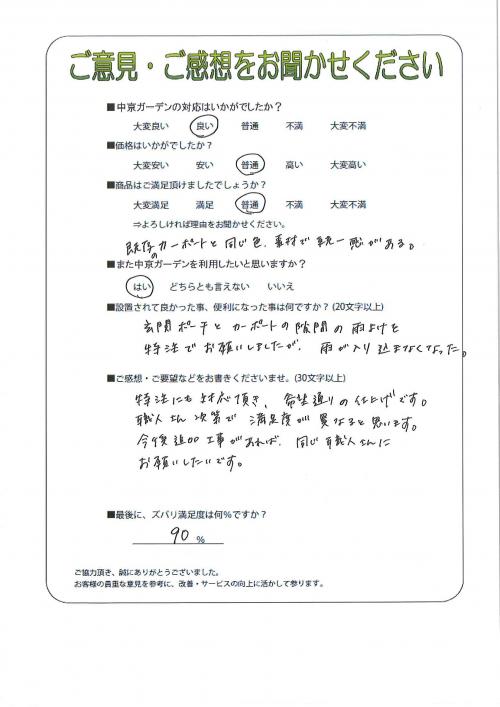 ご意見・ご感想をお聞かせください
■中京ガーデンの対応はいかがでしたか？
大変良い 良い 普通 不満 大変不満
■価格はいかがでしたか？
大変安い 安い 普通 高い 大変高い
■商品はご満足頂けましたでしょうか？
大変満足 満足 普通 不満 大変不満
⇒よろしければ理由をお聞かせください。
既存のカーポートと同じ色、素材で統一感がある。
■また中京ガーデンを利用したいと思いますか？
はい どちらとも言えない いいえ
■設置されて良かった事、便利になった事は何ですか？(20文字以上)
玄関ポーチとカーポートの隙間の雨よけを
特注でお願いしましたが、雨が入り込まなくなった。
■ご感想・ご要望などをお書きくださいませ。(30文字以上)
特注にも対応頂き、希望通りの仕上げです。
職人さん次第で満足度が異なると思います。
今後追加工事があれば、同じ職人さんに
お願いしたいです。
■最後に、ズバリ満足度は何%ですか？
90 %
ご協力頂き、誠にありがとうございました。
お客様の貴重な意見を参考に、改善・サービスの向上に活かして参ります。